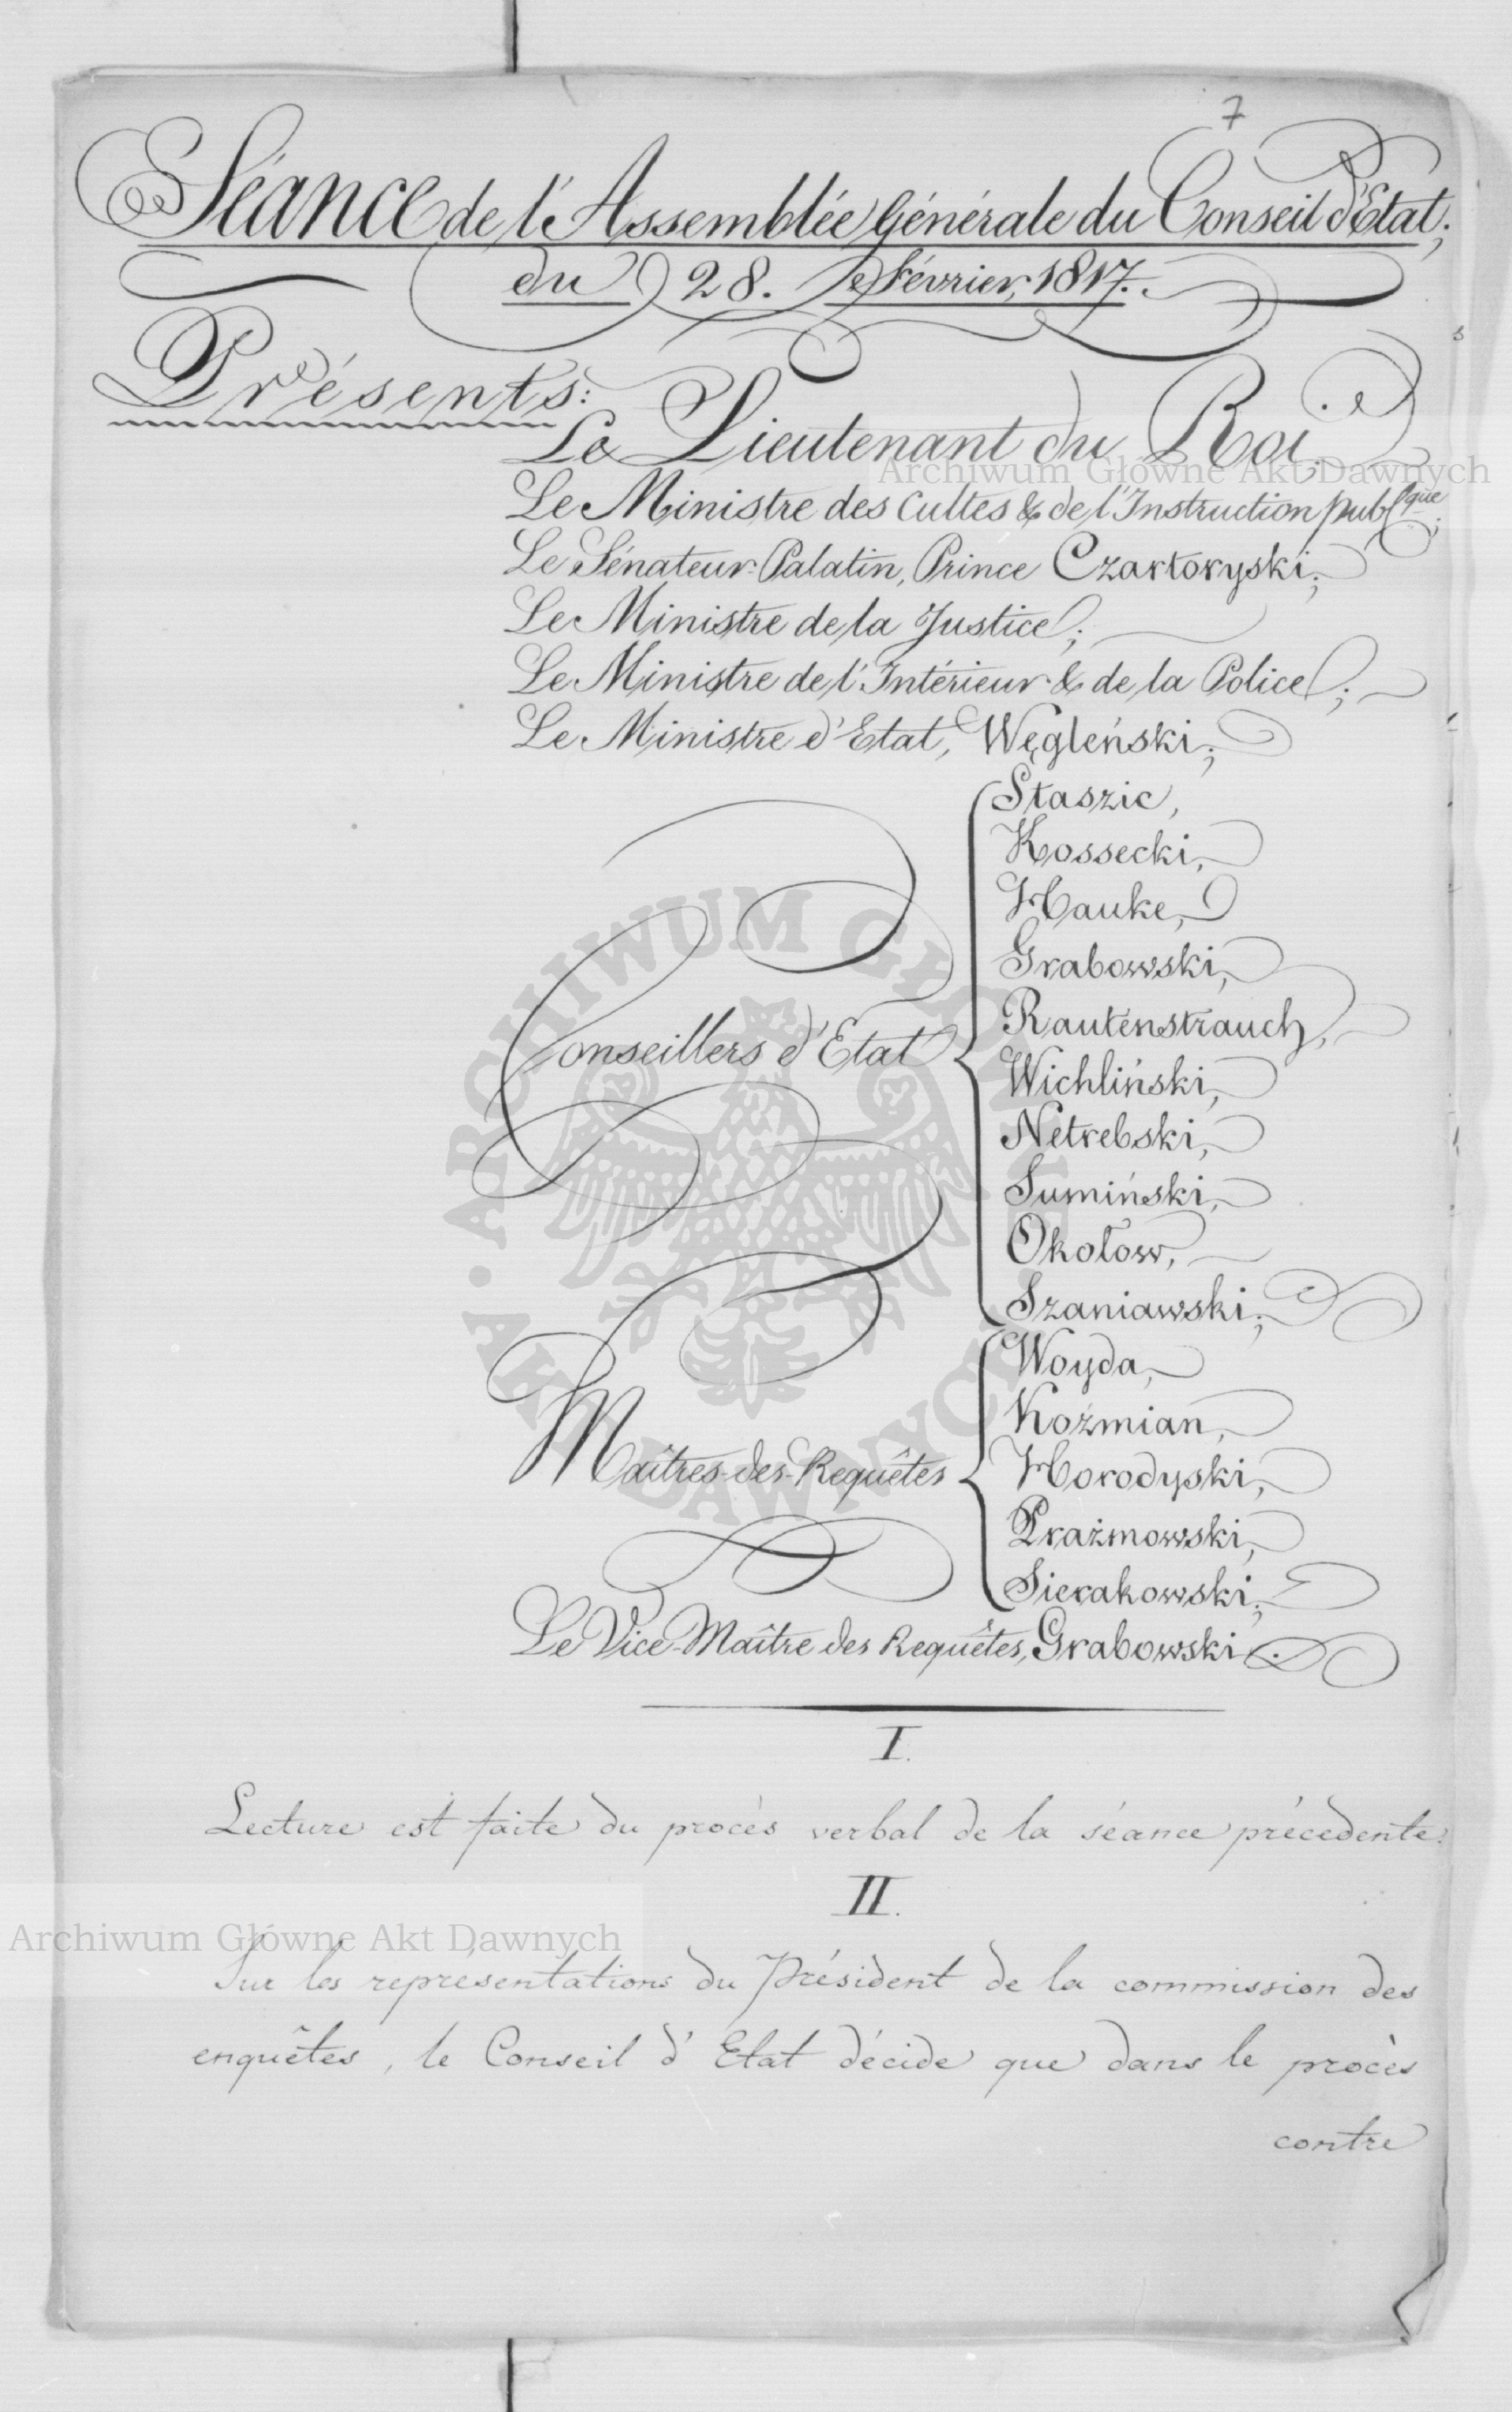 7
Séance de l'Assemblée Générale du Conseil d'Etat;
du 28. Février, 1817.
Présents:
Le Lieutenant du Roi.
Archiwum Główne Akt Dawnych
Le Ministre des Cultes & de l'Instruction publque;
Le Sénateur-Palatin, Prince Czartoryski;
Le Ministre de la Justice;
Le Ministre de l'Intérieur & de la Police;
Le Ministre d'Etat, Węgleński;
Conseillers d'Etat
Staszic,
Kossecki,
Hauke,
Grabowski,
Rautenstrauch,
Wichliński,
Netrebski,
Sumiński,
Okołow,
Szaniawski;
Maîtres-des-Requêtes
Woyda,
Koźmian,
Horodyski,
Prażmowski,
Sierakowski;
Le Vice-Maître des Requêtes, Grabowski.
ARCHIWUM GŁÓWNE AKT DAWNYCH
I.
Lecture est faite du procès verbal de la séance précedente.
II.
Archiwum Główne Akt Dawnych
Sur les représentations du Président de la commission des
enquêtes, le Conseil d'Etat décide que dans le procès
contre